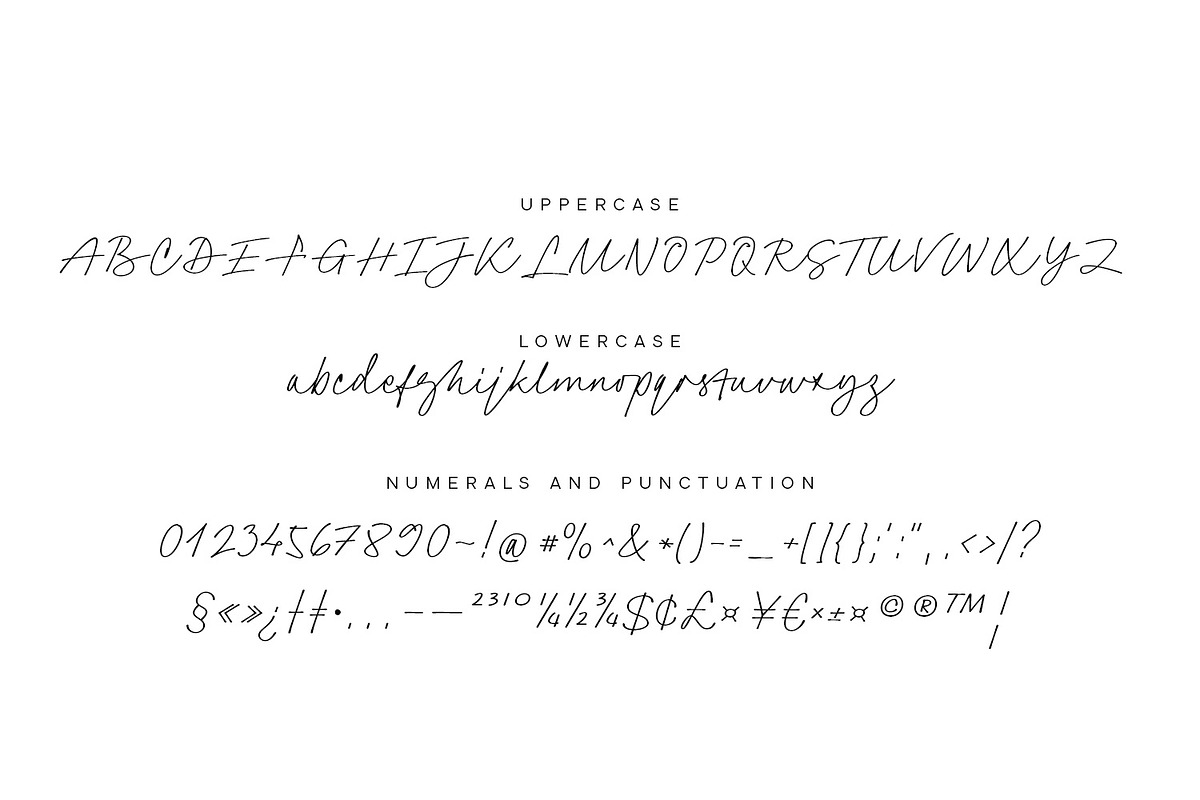 UPPERCASE
ABCDEFGHIJKLMNOPQRSTUVWXYZ
LOWERCASE
abcdefghijklmnopqrstuvwxyz
NUMERALS AND PUNCTUATION
01234567890~!@#%^&*()-=_+[]{};':",.<>/?
§«»¿†‡•...–—²³¹⁰¼½¾$¢£¤¥€×±¤©®™¦